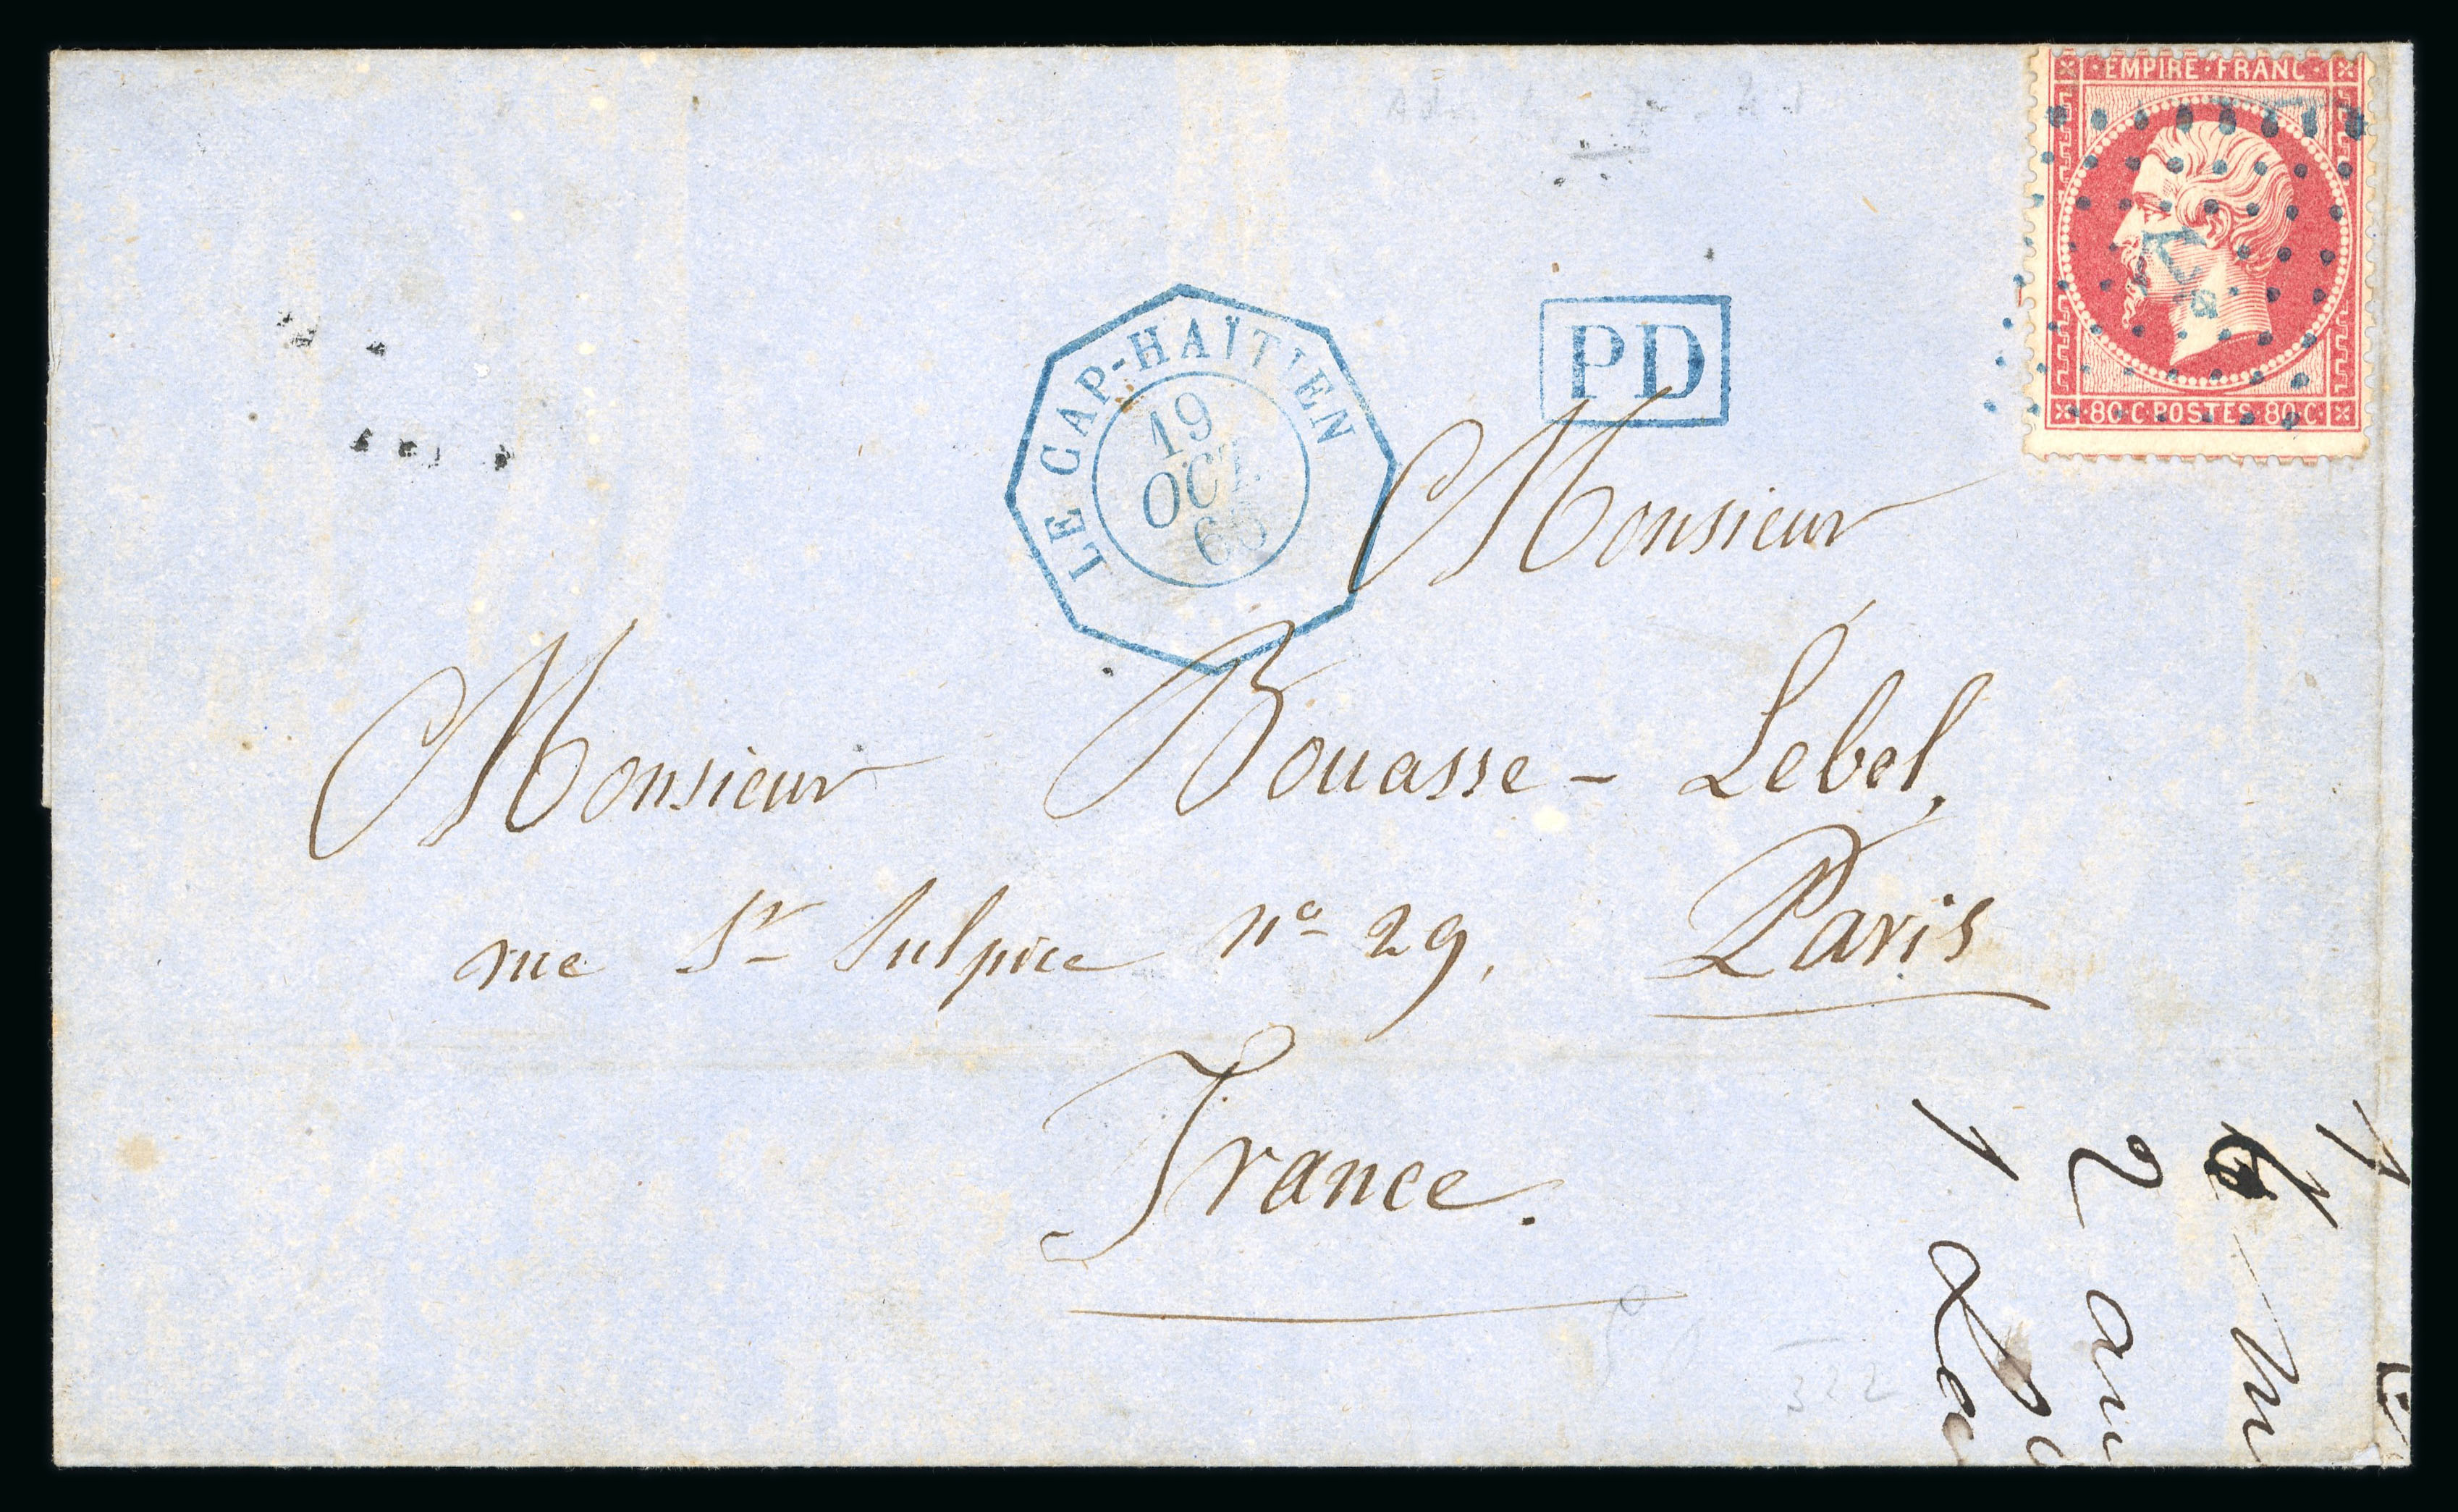 EMPIRE·FRANC·
80·C POSTES 80·C·
LE CAP-HAÏTIEN
19
OCT.
PD
Monsieur
Monsieur Bouasse - Lebel,
rue St Sulpice no 29, Paris
France.
322
1
2
1